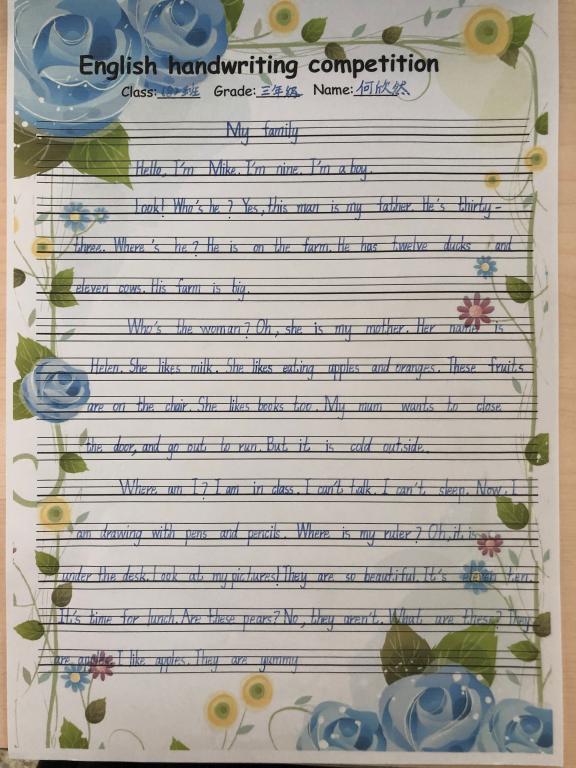 English handwriting competition
Class: 班 Grade: 三年级 Name: 何欣然
My family
Hello, I'm Mike. I'm nine. I'm a boy.
Look! Who's he? Yes, this man is my father. He's thirty-
three. Where's he? He is on the farm. He has twelve ducks and
eleven cows. His farm is big.
Who's the woman? Oh, she is my mother. Her name is
Helen. She likes milk. She likes eating apples and oranges. These fruits
are on the chair. She likes books too. My mum wants to close
the door, and go out to run. But it is cold outside.
Where am I? I am in class. I can't talk. I can't sleep. Now, I
am drawing with pens and pencils. Where is my ruler? Oh, it is
under the desk. Look at my pictures! They are so beautiful. It's ten.
It's time for lunch. Are these pears? No, they aren't. What are these? They
are apples. I like apples. They are yummy